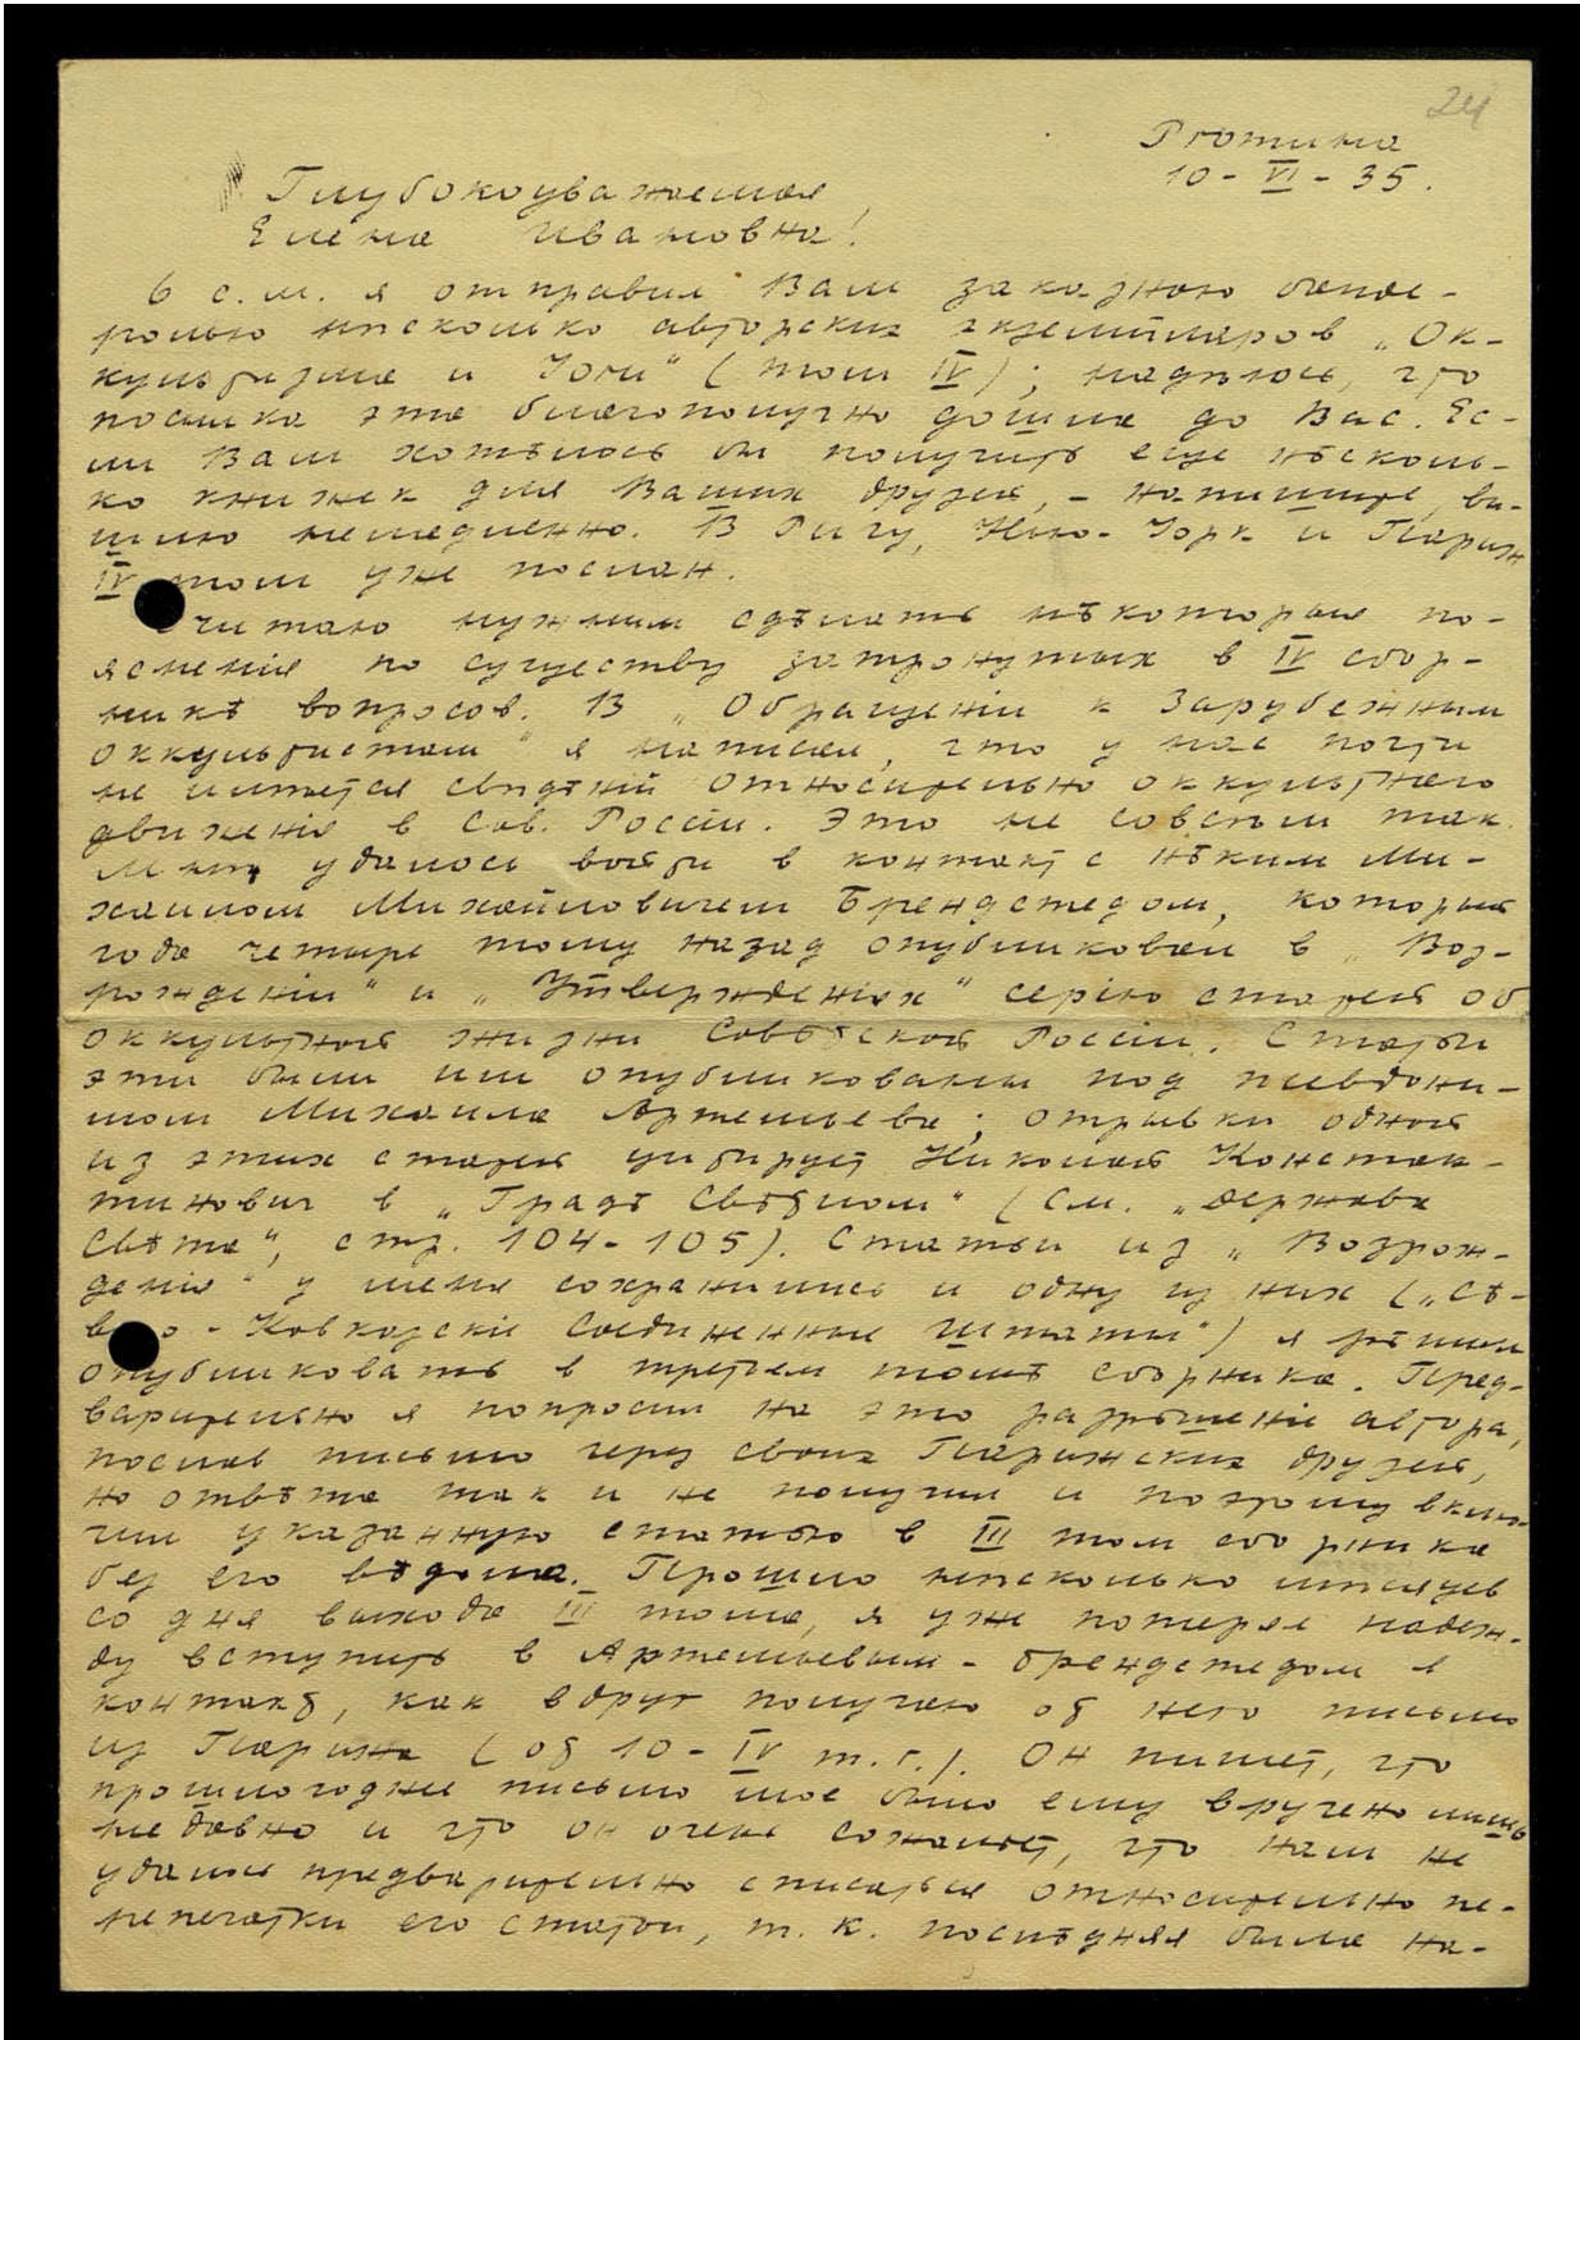 24
Ртотина
10 - VI - 35.
Глубокоуважаемая
Елена Ивановна!
6 с.м. я отправил Вам заказною банде-
ролью нѣсколько авторских экземпляров „Ок-
культизма и Йоги“ (том IV); надѣюсь, что
посылка эта благополучно дошла до Вас. Ес-
ли Вам хотѣлось бы получить еще нѣсколь-
ко книжек для Ваших друзей, - напишите, вы-
шлю немедленно. В Ригу, Нью-Йорк и Париж
IV том уже послан.
Считаю нужным сдѣлать нѣкоторые по-
яснения по существу затронутых в IV сбор-
никѣ вопросов. В „Обращеніи к Зарубежным
оккультистам“ я написал, что у нас почти
не имѣется свѣдѣній относительно оккультнаго
движенія в Сов. Россіи. Это не совсѣм так.
Мнѣ удалось войти в контакт с нѣким Ми-
хаилом Михайловичем Брендстедом, который
года четыре тому назад опубликовал в „Воз-
рожденіи“ и „Утвержденіях“ серію статей об
оккультной жизни Совѣтской Россіи. Статьи
эти были им опубликованы под псевдони-
мом Михаила Артемьева; отрывки одной
из этих статей цитирует Николай Констан-
тинович в „Градѣ Свѣтлом“ (См. „Держава
Свѣта“, стр. 104-105). Статьи из „Возрож-
денія“ у меня сохранились и одну из них („Сѣ-
веро-Кавказскіе Соединенные Штаты“) я рѣшил
опубликовать в третьем томѣ сборника. Пред-
варительно я попросил на это разрѣшеніе автора,
послав письмо через своих Парижских друзей,
но отвѣта так и не получил и поэтому вклю-
чил указанную статью в III том сборника
без его вѣдома. Прошло нѣсколько мѣсяцев
со дня выхода III тома, я уже потерял надеж-
ду вступить в Артемьевым - Брендстедом в
контакт, как вдруг получаю от него письмо
из Парижа (от 10 - IV т.г.). Он пишет, что
прошлогоднее письмо мое было ему вручено лишь
недавно и что он очень сожалѣет, что нам не
удалось предварительно списаться относительно пе-
репечатки его статьи, т.к. послѣдняя была на-